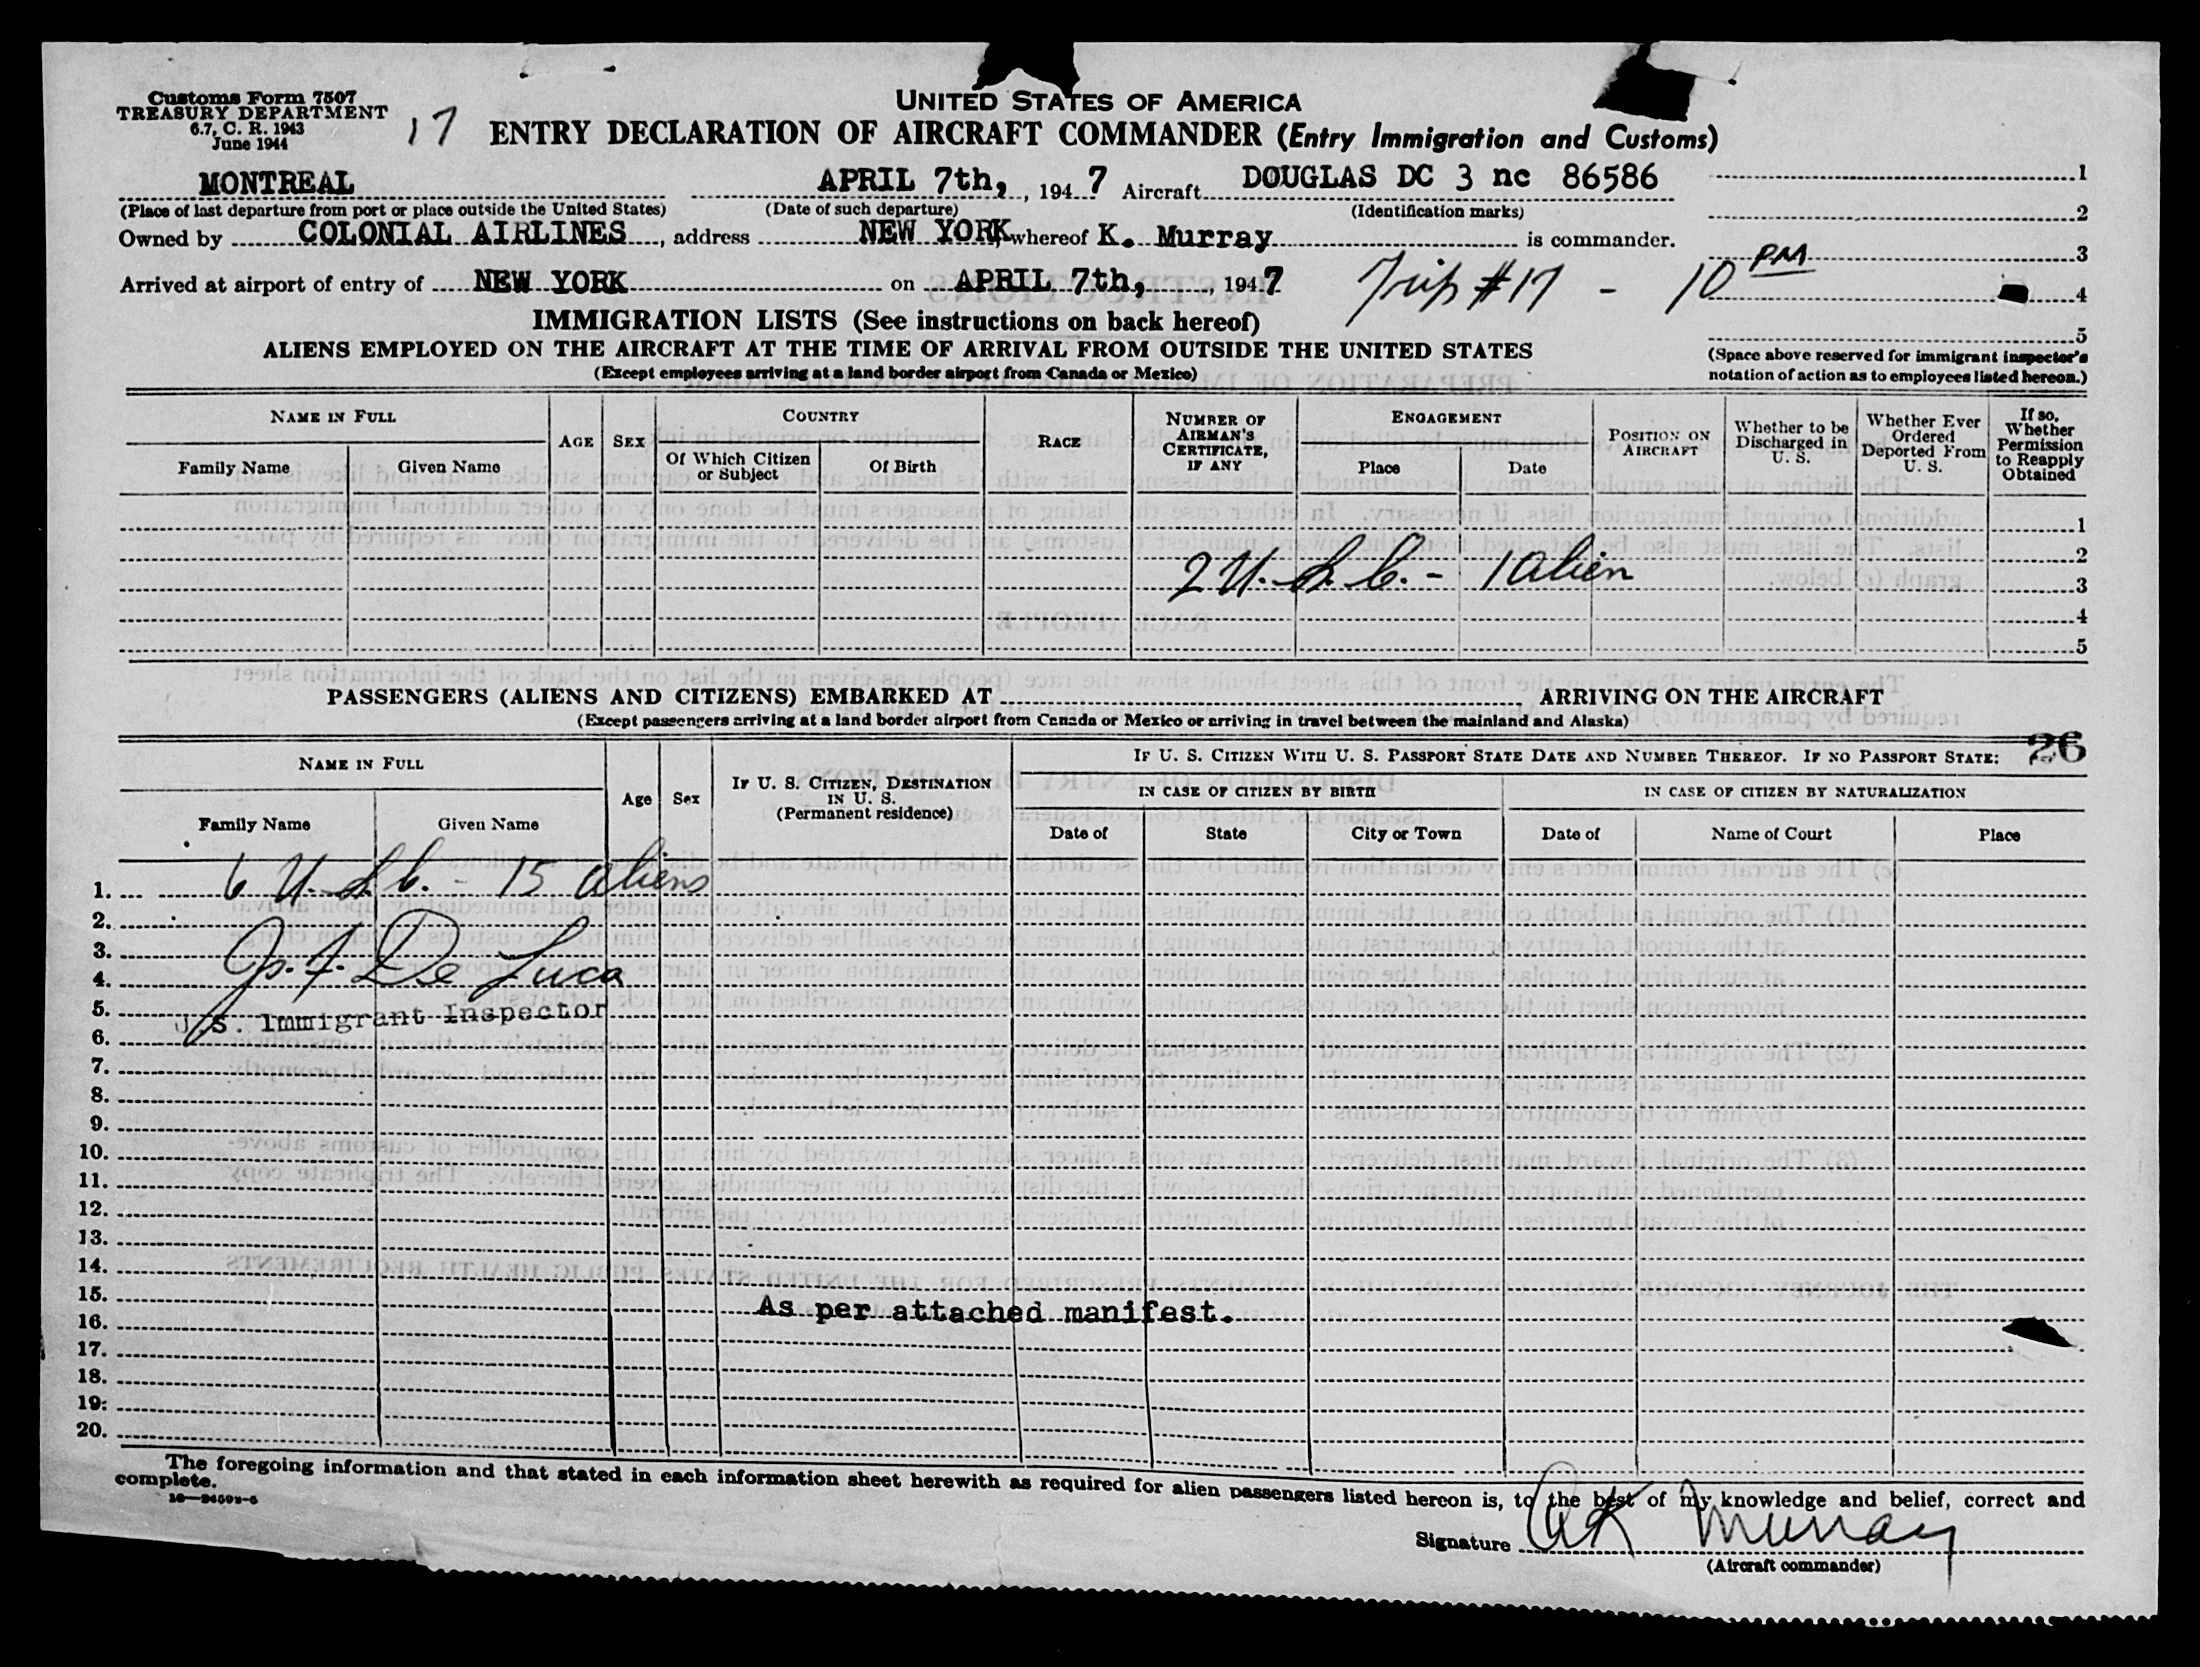 Customs Form 7507
TREASURY DEPARTMENT
6.7, C. R. 1943
June 1944
17
UNITED STATES OF AMERICA
ENTRY DECLARATION OF AIRCRAFT COMMANDER (Entry Immigration and Customs)
MONTREAL APRIL 7th, , 1947 Aircraft DOUGLAS DC 3 nc 86586 1
(Place of last departure from port or place outside the United States) (Date of such departure) (Identification marks) 2
Owned by COLONIAL AIRLINES , address NEW YORK whereof K. Murray is commander. 3
Arrived at airport of entry of NEW YORK on APRIL 7th, , 1947 Trip #17 - 10 PM 4
IMMIGRATION LISTS (See instructions on back hereof) 5
ALIENS EMPLOYED ON THE AIRCRAFT AT THE TIME OF ARRIVAL FROM OUTSIDE THE UNITED STATES
(Except employees arriving at a land border airport from Canada or Mexico)
(Space above reserved for immigrant inspector's
notation of action as to employees listed hereon.)
NAME IN FULL
Family Name Given Name
AGE SEX
COUNTRY
Of Which Citizen or Subject Of Birth
RACE
NUMBER OF AIRMAN'S CERTIFICATE, IF ANY
ENGAGEMENT
Place Date
POSITION ON AIRCRAFT
Whether to be Discharged in U. S.
Whether Ever Ordered Deported From U. S.
If so, Whether Permission to Reapply Obtained
1
2
2 U. S. C. - 1 alien 3
4
5
PASSENGERS (ALIENS AND CITIZENS) EMBARKED AT , ARRIVING ON THE AIRCRAFT
(Except passengers arriving at a land border airport from Canada or Mexico or arriving in travel between the mainland and Alaska)
NAME IN FULL
Family Name Given Name
Age Sex
IF U. S. CITIZEN, DESTINATION IN U. S.
(Permanent residence)
IF U. S. CITIZEN WITH U. S. PASSPORT STATE DATE AND NUMBER THEREOF. IF NO PASSPORT STATE: 26
IN CASE OF CITIZEN BY BIRTH IN CASE OF CITIZEN BY NATURALIZATION
Date of State City or Town Date of Name of Court Place
1. 6 U. S. C. - 15 aliens
2.
3.
4. J. F. De Luca
5. U.S. Immigrant Inspector
6.
7.
8.
9.
10.
11.
12.
13.
14.
15. As per attached manifest.
16.
17.
18.
19.
20.
The foregoing information and that stated in each information sheet herewith as required for alien passengers listed hereon is, to the best of my knowledge and belief, correct and
complete.
Signature K Murray
(Aircraft commander)